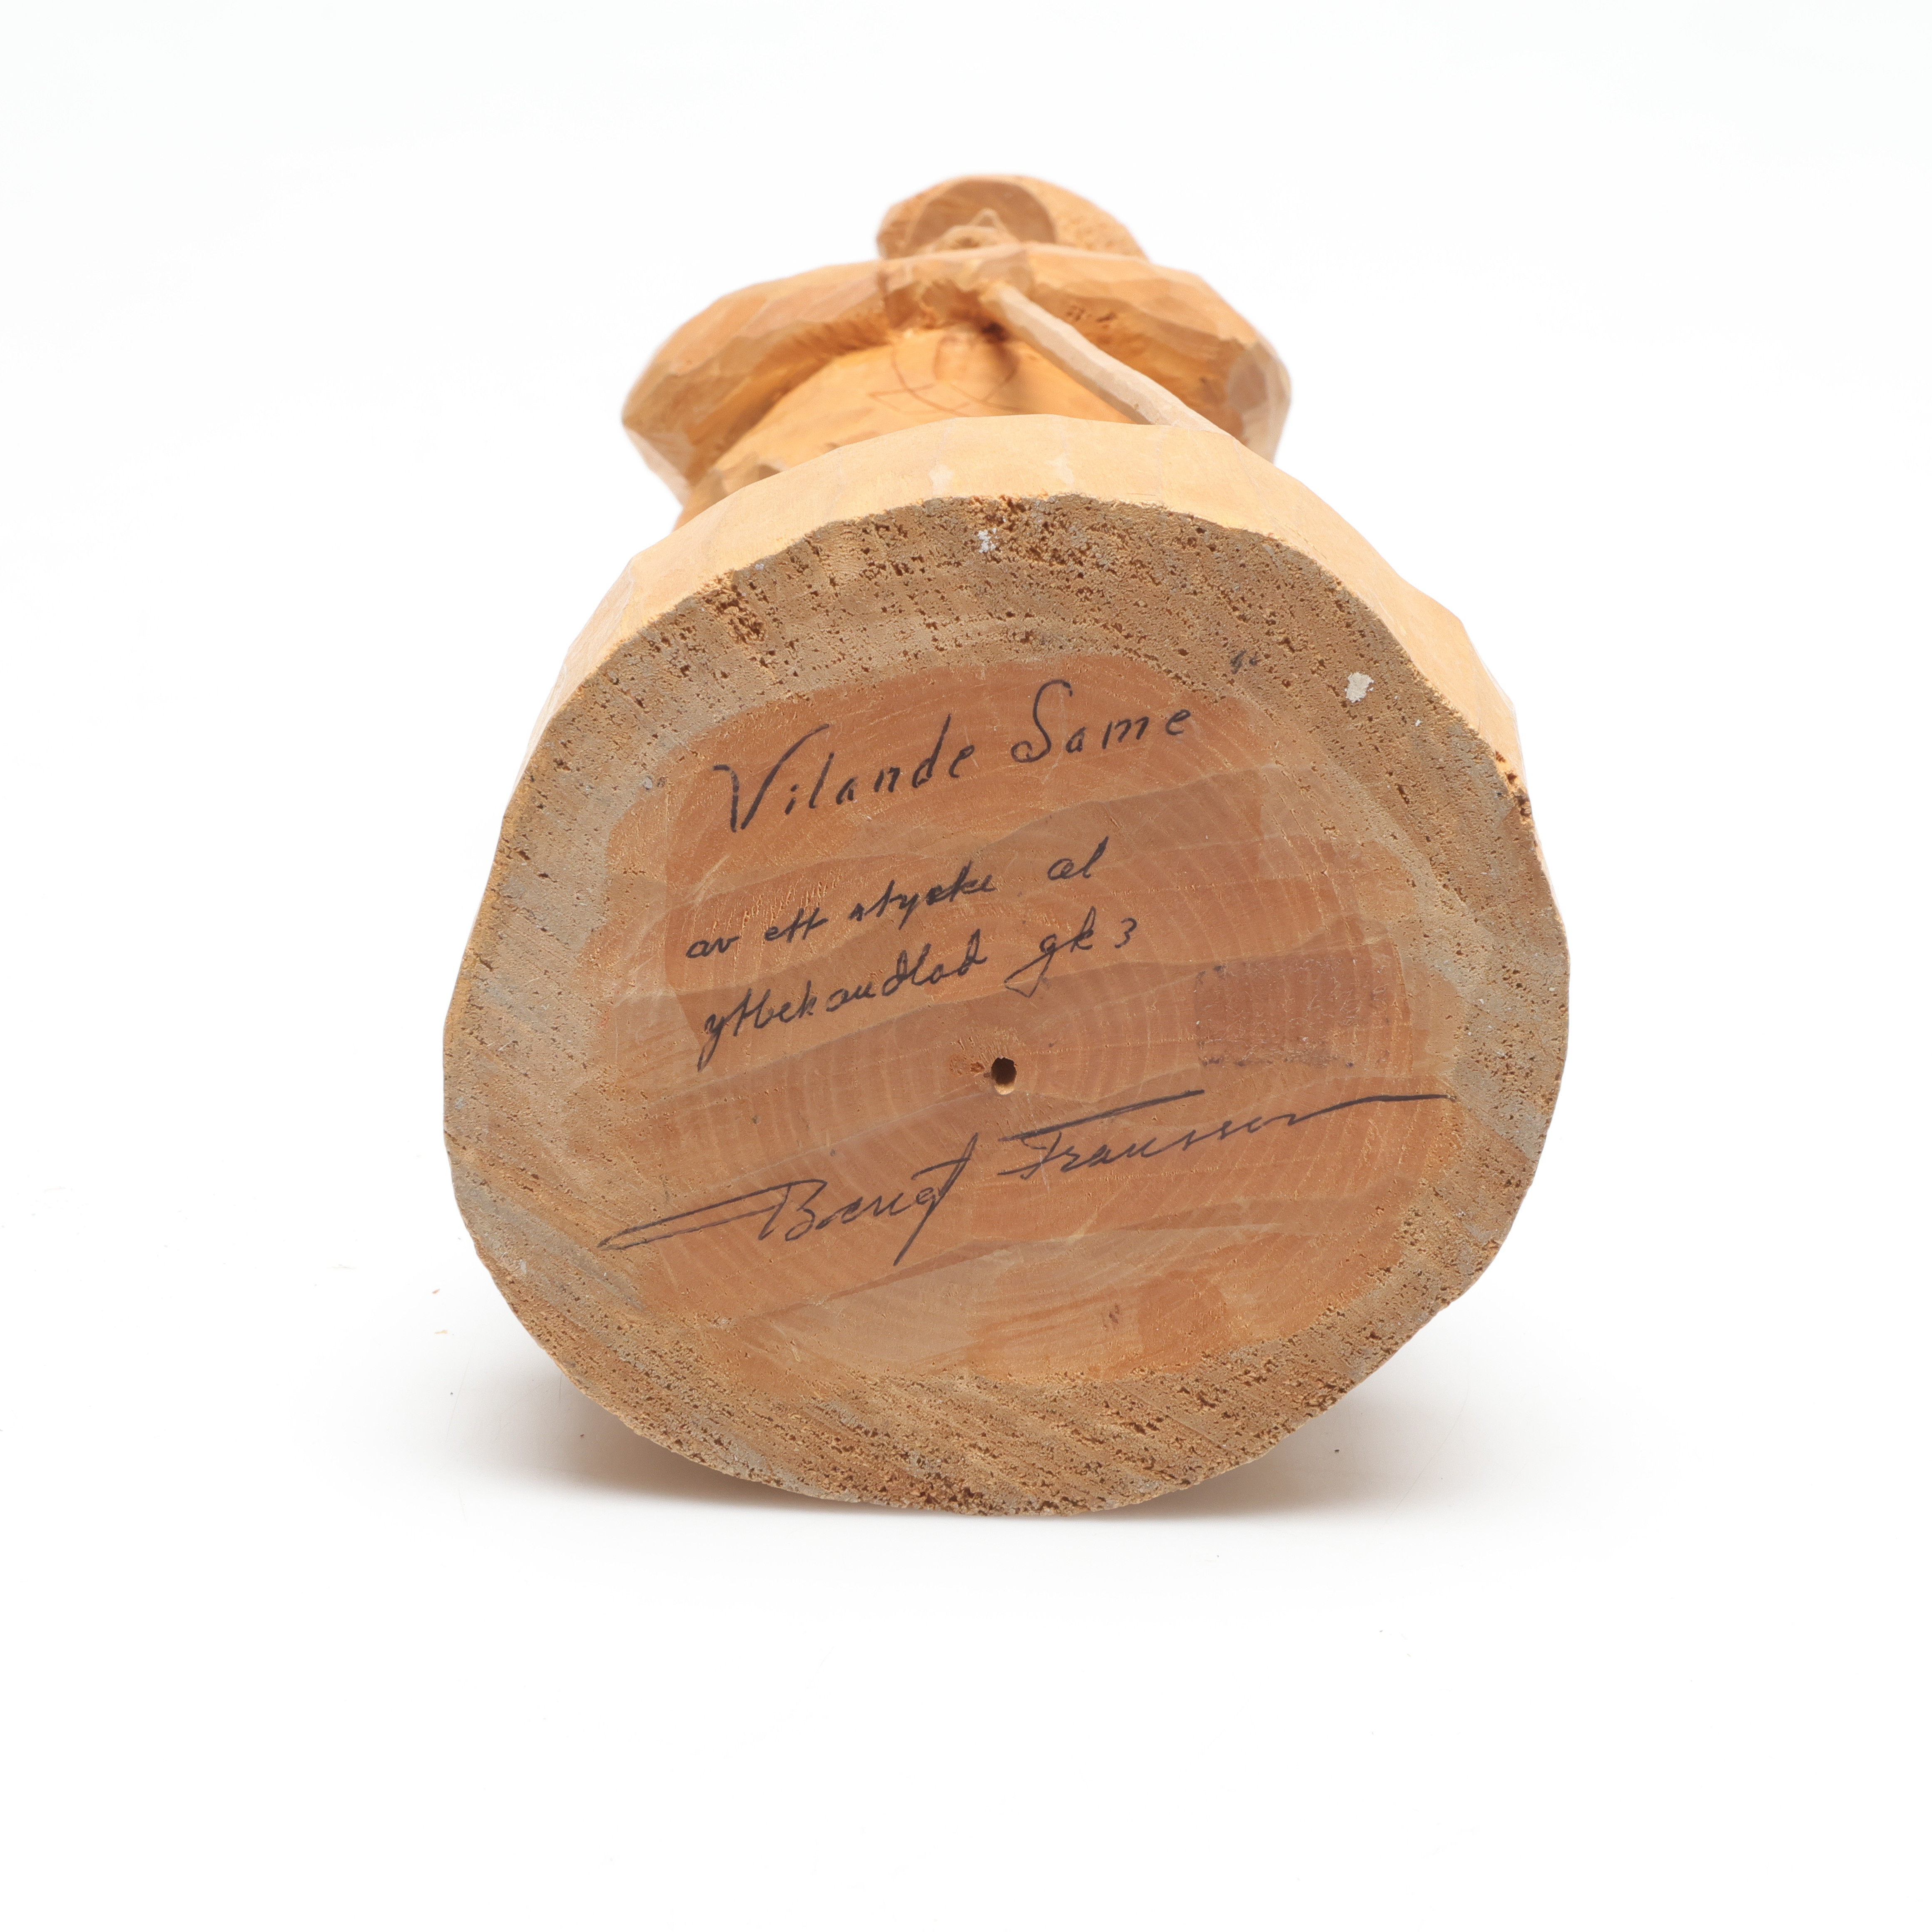 Vilande Same
av ett stycke al
ytbehandlad gk3
Bengt Fransson